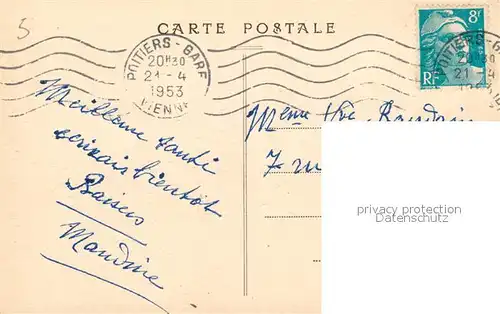 5
CARTE POSTALE
POITIERS - GARE
20H30
21-4
1953
VIENNE
8F
RF
POITIERS-G
Meilleure santé
écrirais bientôt
Baisers
Mme Vve
7
privacy protection
Datenschutz